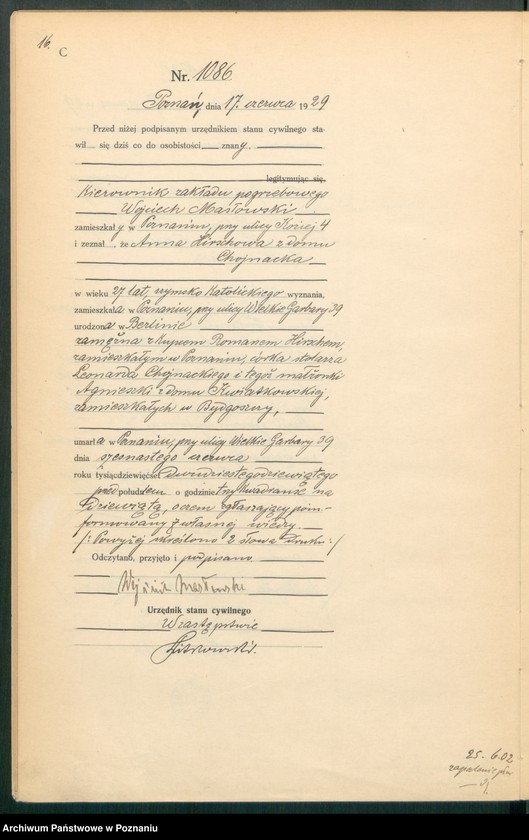 16.
C
Nr. 1086
Poznań, dnia 17. czerwca 1929
Przed niżej podpisanym urzędnikiem stanu cywilnego sta-
wił się dziś co do osobistości znany,
legitymując się,
Kierownik zakładu pogrzebowego
Wojciech Masłowski
zamieszkały w Poznaniu, przy ulicy Koziej 4
i zeznał, że Anna Hirschowa z domu
Chojnacka
w wieku 27 lat, rzymsko Katolickiego wyznania,
zamieszkała w Poznaniu, przy ulicy Wielkie Garbary 39
urodzona w Berlinie
zamężna z kupcem Romanem Hirschem,
zamieszkałym w Poznaniu, córka stolarza
Leonarda Chojnackiego i tegoż małżonki
Agnieszki z domu Kwiatkowskiej,
zamieszkałych w Bydgoszczy,
umarła w Poznaniu, przy ulicy Wielkie Garbary 39
dnia szesnastego czerwca
roku tysiącdziewięćset dwudziestegodziewiątego
przed południem o godzinie trzy kwadranse na
dziewiątą, o czem zgłaszający poin-
formowany z własnej wiedzy.
/: Powyżej skreślono 2 słowa druku :/
Odczytano, przyjęto i podpisano
Wojciech Masłowski
Urzędnik stanu cywilnego
W zastępstwie
25-6.02
zapalenie płuc
Archiwum Państwowe w Poznaniu